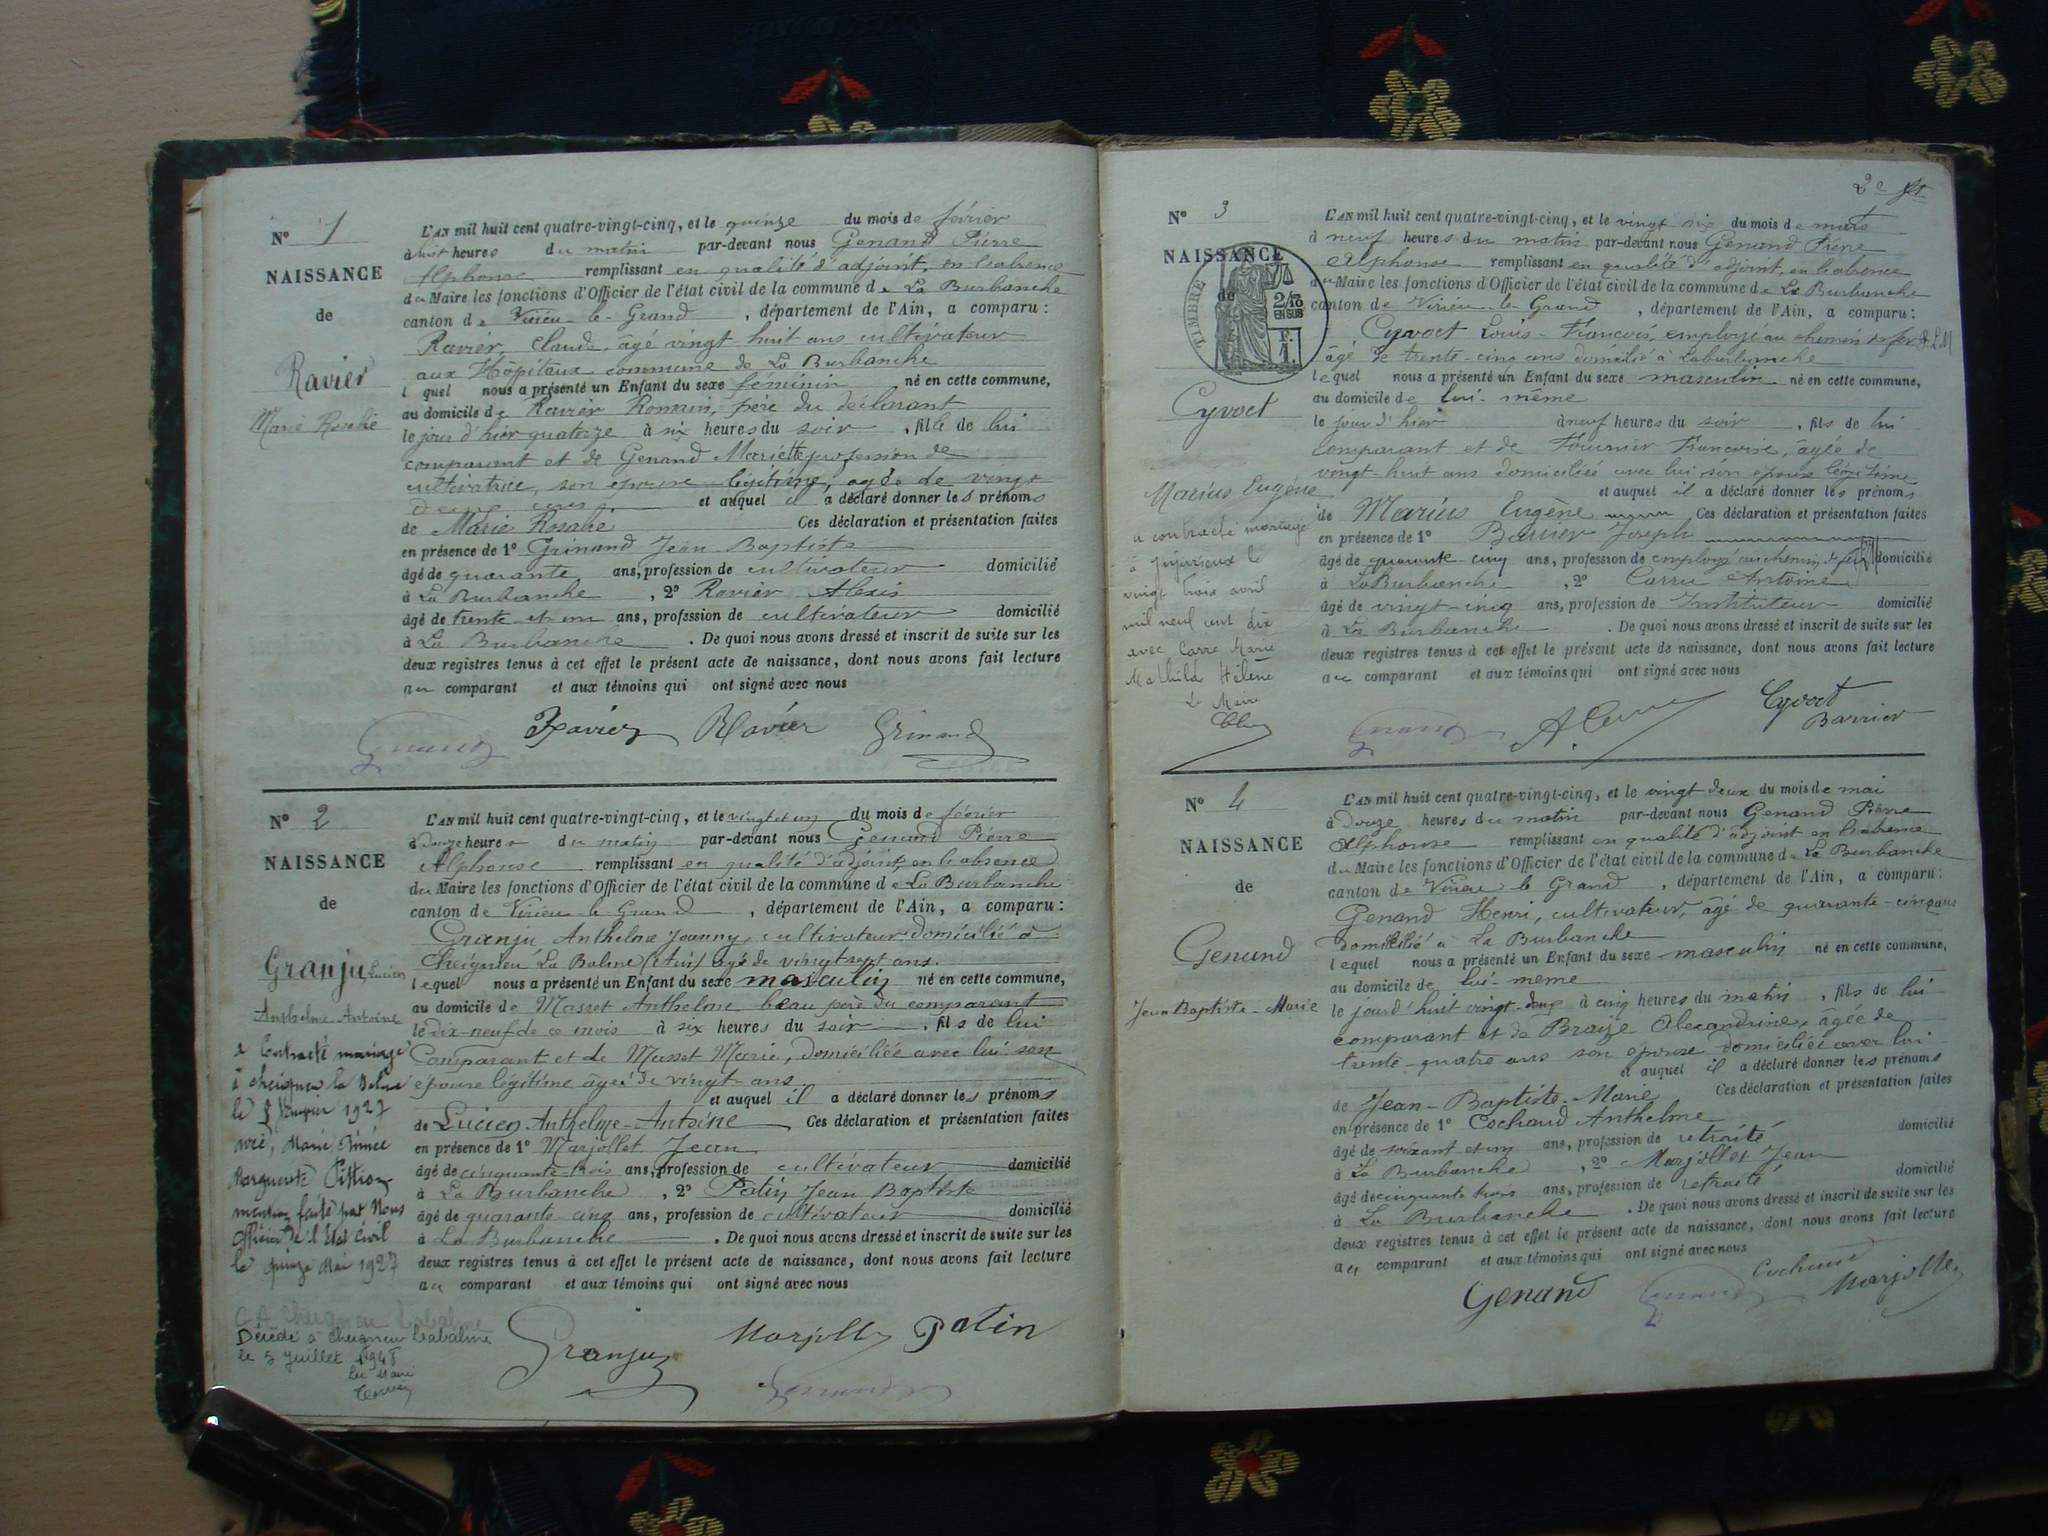 N° 1
NAISSANCE
de
Ravier
Marie Rosalie
L'AN mil huit cent quatre-vingt-cinq, et le quinze du mois de février
à huit heures du matin par-devant nous Genand Pierre
Alphonse remplissant en qualité d'adjoint, en l'absence
du Maire les fonctions d'Officier de l'état civil de la commune de La Burbanche
canton de Virieu-le-Grand, département de l'Ain, a comparu :
Ravier, Claude, âgé vingt-huit ans cultivateur
aux Hôpitaux commune de La Burbanche
lequel nous a présenté un Enfant du sexe féminin né en cette commune,
au domicile de Ravier Romain, père du déclarant
le jour d'hier quatorze à six heures du soir, fille de lui
comparant et de Genand Mariette profession de
cultivatrice, son épouse légitime, agée de vingt
deux ans. et auquel il a déclaré donner les prénoms
de Marie Rosalie Ces déclaration et présentation faites
en présence de 1° Grinand Jean-Baptiste
âgé de quarante ans, profession de cultivateur domicilié
à La Burbanche, 2° Ravier Alexis
âgé de trente et un ans, profession de cultivateur domicilié
à La Burbanche. De quoi nous avons dressé et inscrit de suite sur les
deux registres tenus à cet effet le présent acte de naissance, dont nous avons fait lecture
au comparant et aux témoins qui ont signé avec nous
Genand Ravier Ravier Grinand
N° 2
NAISSANCE
de
Granju Lucien
Anthelme-Antoine
a contracté mariage
à Cheignieu la Balme
le
1927
avec Marie
Marguerite
mention faite par Nous
Officier de l'Etat civil
le quinze Mai 1927
Cheignieu Labalme
Décédé à Cheignieu Labalme
le 5 Juillet 1948
Le Maire
L'AN mil huit cent quatre-vingt-cinq, et le vingt et un du mois de février
à douze heures du matin par-devant nous Genand Pierre
Alphonse remplissant en qualité d'adjoint, en l'absence
du Maire les fonctions d'Officier de l'état civil de la commune de La Burbanche
canton de Virieu-le-Grand, département de l'Ain, a comparu :
Granju Anthelme Joanny, cultivateur domicilié à
Cheignieu La Balme (Ain) agé de vingt sept ans.
lequel nous a présenté un Enfant du sexe masculin né en cette commune,
au domicile de Masset Anthelme beau père du comparant
le dix-neuf de ce mois à six heures du soir, fils de lui
Comparant et de Masset Marie, domiciliée avec lui son
épouse légitime âgée de vingt ans
et auquel il a déclaré donner les prénoms
de Lucien Anthelme-Antoine Ces déclaration et présentation faites
en présence de 1° Marjollet Jean
âgé de cinquante-trois ans, profession de cultivateur domicilié
à La Burbanche, 2° Patin Jean Baptiste
âgé de quarante cinq ans, profession de cultivateur domicilié
à La Burbanche. De quoi nous avons dressé et inscrit de suite sur les
deux registres tenus à cet effet le présent acte de naissance, dont nous avons fait lecture
au comparant et aux témoins qui ont signé avec nous
Granju Marjollet Patin
Genand
2e ft
N° 3
NAISSANCE
de
TIMBRE
2/10
EN SUS
Cyvoct
Marius Eugène
a contracté mariage
à Jujurieux le
vingt trois avril
mil neuf cent dix
avec Carre Marie
Mathilde Hélène
Le Maire
L'AN mil huit cent quatre-vingt-cinq, et le vingt six du mois de mars
à neuf heures du matin par-devant nous Genand Pierre
Alphonse remplissant en qualité d'adjoint, en l'absence
du Maire les fonctions d'Officier de l'état civil de la commune de La Burbanche
canton de Virieu-le-Grand, département de l'Ain, a comparu :
Cyvoct Louis-François, employé au chemin de fer P.L.M
âgé de trente-cinq ans domicilié à Laburbanche
lequel nous a présenté un Enfant du sexe masculin né en cette commune,
au domicile de lui-même
le jour d'hier à neuf heures du soir, fils de lui
comparant et de Fournier Françoise, âgée de
vingt-huit ans domiciliée avec lui, son épouse légitime
et auquel il a déclaré donner les prénoms
de Marius Eugène Ces déclaration et présentation faites
en présence de 1° Barrier Joseph
âgé de quarante-cinq ans, profession de employé au chemin de fer domicilié
à La Burbanche, 2° Carru Antoine
âgé de vingt-cinq ans, profession de Instituteur domicilié
à La Burbanche. De quoi nous avons dressé et inscrit de suite sur les
deux registres tenus à cet effet le présent acte de naissance, dont nous avons fait lecture
au comparant et aux témoins qui ont signé avec nous
Genand Cyvoct
Barrier
N° 4
NAISSANCE
de
Genand
Jean Baptiste-Marie
L'AN mil huit cent quatre-vingt-cinq, et le vingt deux du mois de mai
à douze heures du matin par-devant nous Genand Pierre
Alphonse remplissant en qualité d'adjoint en l'absence
du Maire les fonctions d'Officier de l'état civil de la commune de La Burbanche
canton de Virieu le Grand, département de l'Ain, a comparu :
Genand Henri, cultivateur, âgé de quarante-cinq ans
domicilié à La Burbanche
lequel nous a présenté un Enfant du sexe masculin né en cette commune,
au domicile de lui-même
le jourd'huit vingt-deux à cinq heures du matin, fils de lui
comparant et de Braize Alexandrine, âgée de
trente-quatre ans son épouse domiciliée avec lui
et auquel il a déclaré donner les prénoms
de Jean-Baptiste-Marie Ces déclaration et présentation faites
en présence de 1° Cochand Anthelme
âgé de soixant et un ans, profession de retraité domicilié
à La Burbanche, 2° Marjollet Jean
âgé de cinquante trois ans, profession de retraité domicilié
à La Burbanche. De quoi nous avons dressé et inscrit de suite sur les
deux registres tenus à cet effet le présent acte de naissance, dont nous avons fait lecture
au comparant et aux témoins qui ont signé avec nous
Genand Genand Cochand Marjollet